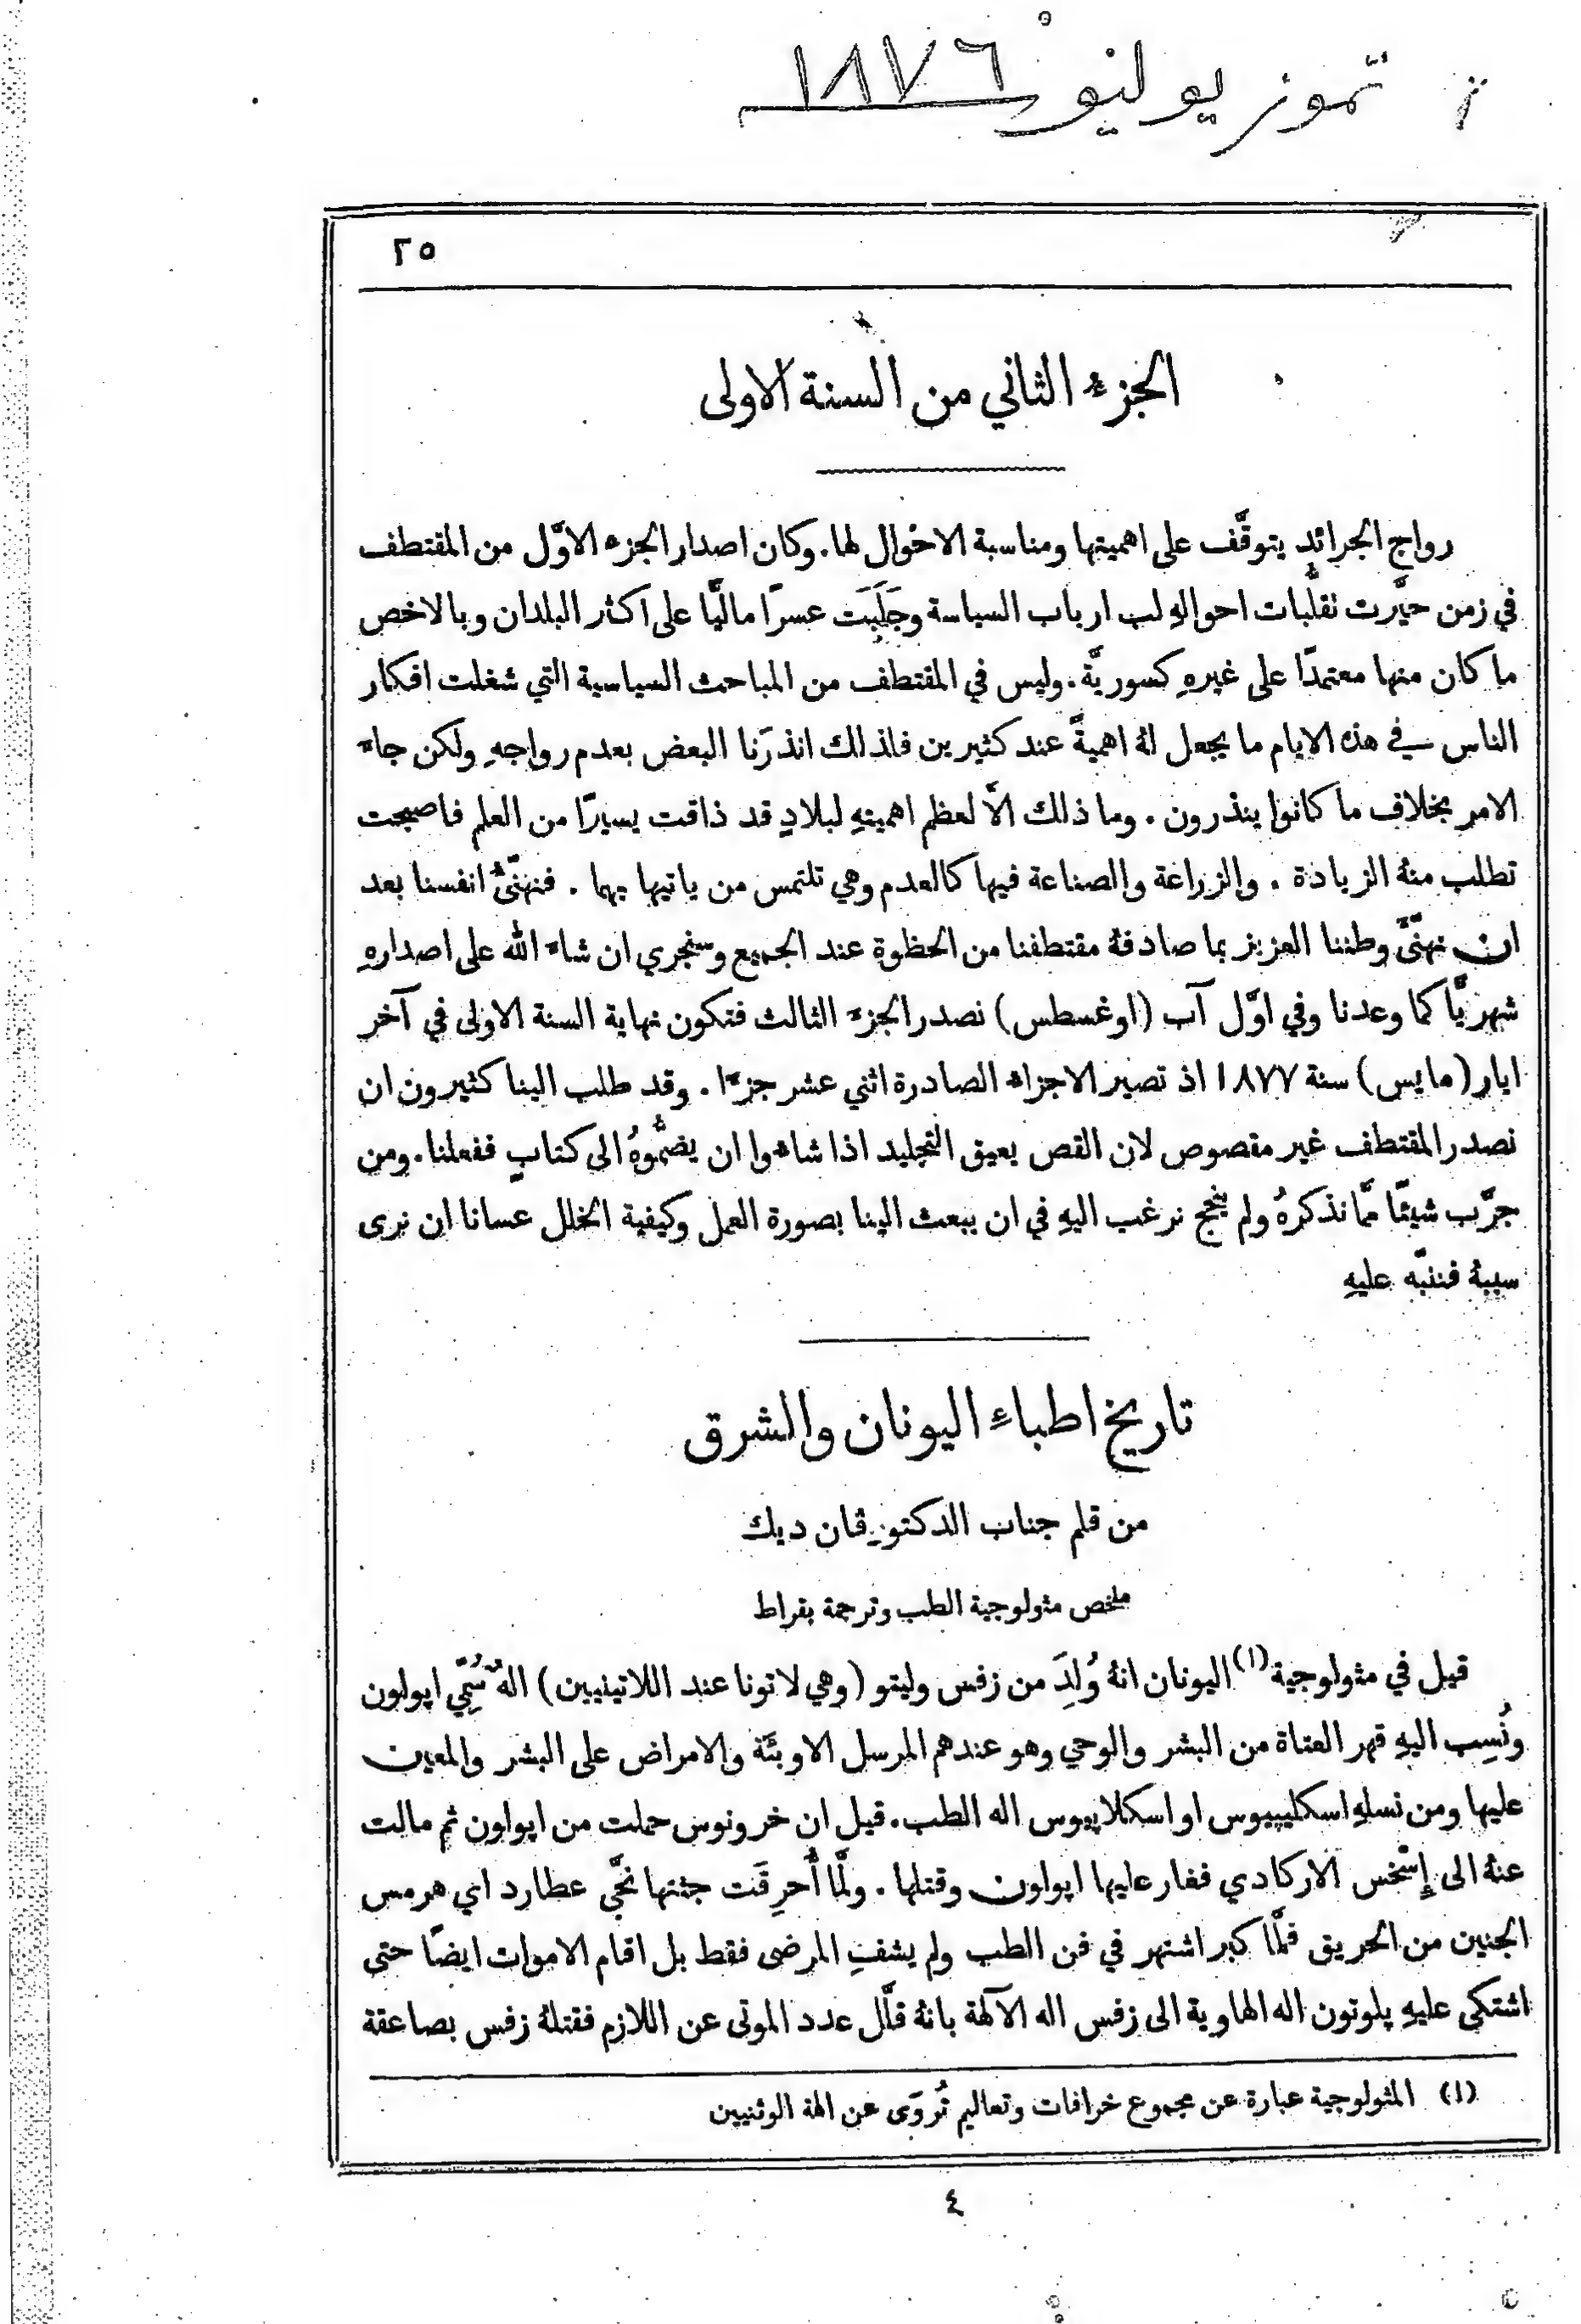 تموز يوليو ١٨٧٦
٢٥
الجزء الثاني من السنة الاولى
رواج الجرائد يتوقَّف على اهميتها ومناسبة الاحوال لها. وكان اصدار الجزء الاوَّل من المقتطف
في زمن حيَّرت تقلُّبات احوالهِ لب ارباب السياسة وجَلَبَت عسرًا ماليًّا على اكثر البلدان وبالاخص
ما كان منها معتمدًا على غيرهِ كسوريَّة. وليس في المقتطف من المباحث السياسية التي شغلت افكار
الناس في هذه الايام ما يجعل لهُ اهميةً عند كثيرين فلذلك انذرَنا البعض بعدم رواجهِ ولكن جاء
الامر بخلاف ما كانوا ينذرون. وما ذلك الَّا لعظم اهميتهِ لبلادٍ قد ذاقت يسيرًا من العلم فاصبحت
تطلب منهُ الزيادة. والزراعة والصناعة فيها كالعدم وهي تلتمس من ياتيها بهما. فنهنّئُ انفسنا بعد
ان نهنّئَ وطننا العزيز بما صادفهُ مقتطفنا من الحظوة عند الجميع وسنجري ان شاء الله على اصدارهِ
شهريًّا كما وعدنا وفي اوَّل آب (اوغسطس) نصدر الجزء الثالث فتكون نهاية السنة الاولى في آخر
ايار (مايس) سنة ١٨٧٧ اذ تصير الاجزاء الصادرة اثني عشر جزءًا. وقد طلب الينا كثيرون ان
نصدر المقتطف غير مقصوص لان القص يعيق التجليد اذا شاءوا ان يضمُّوهُ الى كتابٍ ففعلنا. ومن
جرَّب شيئًا ممَّا نذكرهُ ولم ينجح نرغب اليهِ في ان يبعث الينا بصورة العمل وكيفية الخلل عسانا ان نرى
سببهُ فننبّه عليهِ
تاريخ اطباءِ اليونان والشرق
من قلم جناب الدكتور ڤان ديك
ملخص مثولوجية الطب وترجمة بقراط
قيل في مثولوجية (١) اليونان انهُ وُلِدَ من زفس وليتو (وهي لاتونا عند اللاتينيين) الهٌ سُمِّي اپولون
ونُسِب اليهِ قهر العتاة من البشر والوحي وهو عندهم المرسل الاوبئَة والامراض على البشر والمعين
عليها ومن نسلهِ اسكليپيوس او اسكلاپيوس اله الطب. قيل ان خرونوس حملت من اپولون ثم مالت
عنهُ الى إِسْخس الاركادي فغار عليها اپولون وقتلها. ولمَّا أُحرِقَت جثتها نجَّى عطارد اي هرمس
الجنين من الحريق فلمَّا كبر اشتهر في فن الطب ولم يشفِ المرضى فقط بل اقام الاموات ايضًا حتى
اشتكى عليهِ پلوتون اله الهاوية الى زفس اله الآلهة بانهُ قلَّل عدد الموتى عن اللازم فقتلهُ زفس بصاعقة
(١) المثولوجية عبارة عن مجموع خرافات وتعاليم تُروَى عن الهة الوثنيين
٤